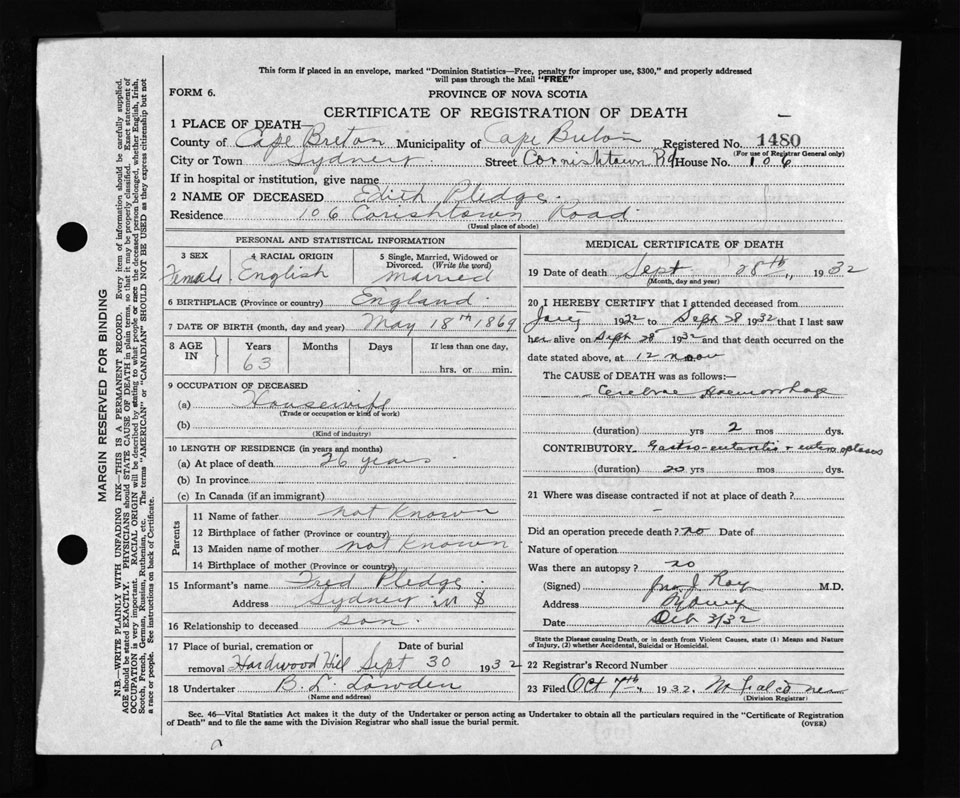 This form if placed in an envelope, marked "Dominion Statistics—Free, penalty for improper use, $300," and properly addressed
will pass through the Mail "FREE"
FORM 6.
PROVINCE OF NOVA SCOTIA
CERTIFICATE OF REGISTRATION OF DEATH
1 PLACE OF DEATH—
County of Cape Breton Municipality of Cape Breton Registered No. 1480
(For use of Registrar General only)
City or Town Sydney Street Cornishtown Rd House No. 106
If in hospital or institution, give name
2 NAME OF DECEASED Edith Pledge
Residence 106 Corishtown Road
(Usual place of abode)
PERSONAL AND STATISTICAL INFORMATION
3 SEX 4 RACIAL ORIGIN 5 Single, Married, Widowed or Divorced. (Write the word)
Female English Married
6 BIRTHPLACE (Province or country) England
7 DATE OF BIRTH (month, day and year) May 18th 1869
8 AGE IN Years Months Days If less than one day,
63 hrs. or min.
9 OCCUPATION OF DECEASED
(a) Housewife
(Trade or occupation or kind of work)
(b)
(Kind of industry)
10 LENGTH OF RESIDENCE (in years and months)
(a) At place of death 26 years
(b) In province
(c) In Canada (if an immigrant)
Parents
11 Name of father not known
12 Birthplace of father (Province or country)
13 Maiden name of mother not known
14 Birthplace of mother (Province or country)
15 Informant's name Fred Pledge
Address Sydney N S
16 Relationship to deceased son
17 Place of burial, cremation or removal Hardwood Hill Date of burial Sept 30 1932
18 Undertaker B. L. Lowden
(Name and address)
MEDICAL CERTIFICATE OF DEATH
19 Date of death Sept 28th, 1932
(Month, day and year)
20 I HEREBY CERTIFY that I attended deceased from
1932 to Sept 28 1932 that I last saw
her alive on Sept 28 1932 and that death occurred on the
date stated above, at 12 noon
The CAUSE OF DEATH was as follows:—
Haemorrhage
(duration) yrs 2 mos dys.
CONTRIBUTORY Gastro-
(duration) 20 yrs mos. dys.
21 Where was disease contracted if not at place of death?
Did an operation precede death? no Date of
Nature of operation
Was there an autopsy? no
(Signed) Jno. J. Roy M.D.
Address Sydney
Date Oct 3/32
State the Disease causing Death, or in death from Violent Causes, state (1) Means and Nature
of Injury, (2) whether Accidental, Suicidal or Homicidal.
22 Registrar's Record Number
23 Filed Oct 7th, 1932.
(Division Registrar)
Sec. 46—Vital Statistics Act makes it the duty of the Undertaker or person acting as Undertaker to obtain all the particulars required in the "Certificate of Registration
of Death" and to file the same with the Division Registrar who shall issue the burial permit.
(OVER)
MARGIN RESERVED FOR BINDING
N.B.—WRITE PLAINLY WITH UNFADING INK—THIS IS A PERMANENT RECORD. Every item of information should be carefully supplied.
AGE should be stated EXACTLY. PHYSICIANS should STATE CAUSE OF DEATH in plain terms, so that it may be properly classified. Exact statement of
OCCUPATION is very important. RACIAL ORIGIN will be described by stating to what people or race the deceased person belonged, whether English, Irish,
Scotch, French, German, Russian, Ruthenian, etc. The terms "AMERICAN" or "CANADIAN" SHOULD NOT BE USED as they express citizenship but not
a race or people. See instructions on back of Certificate.